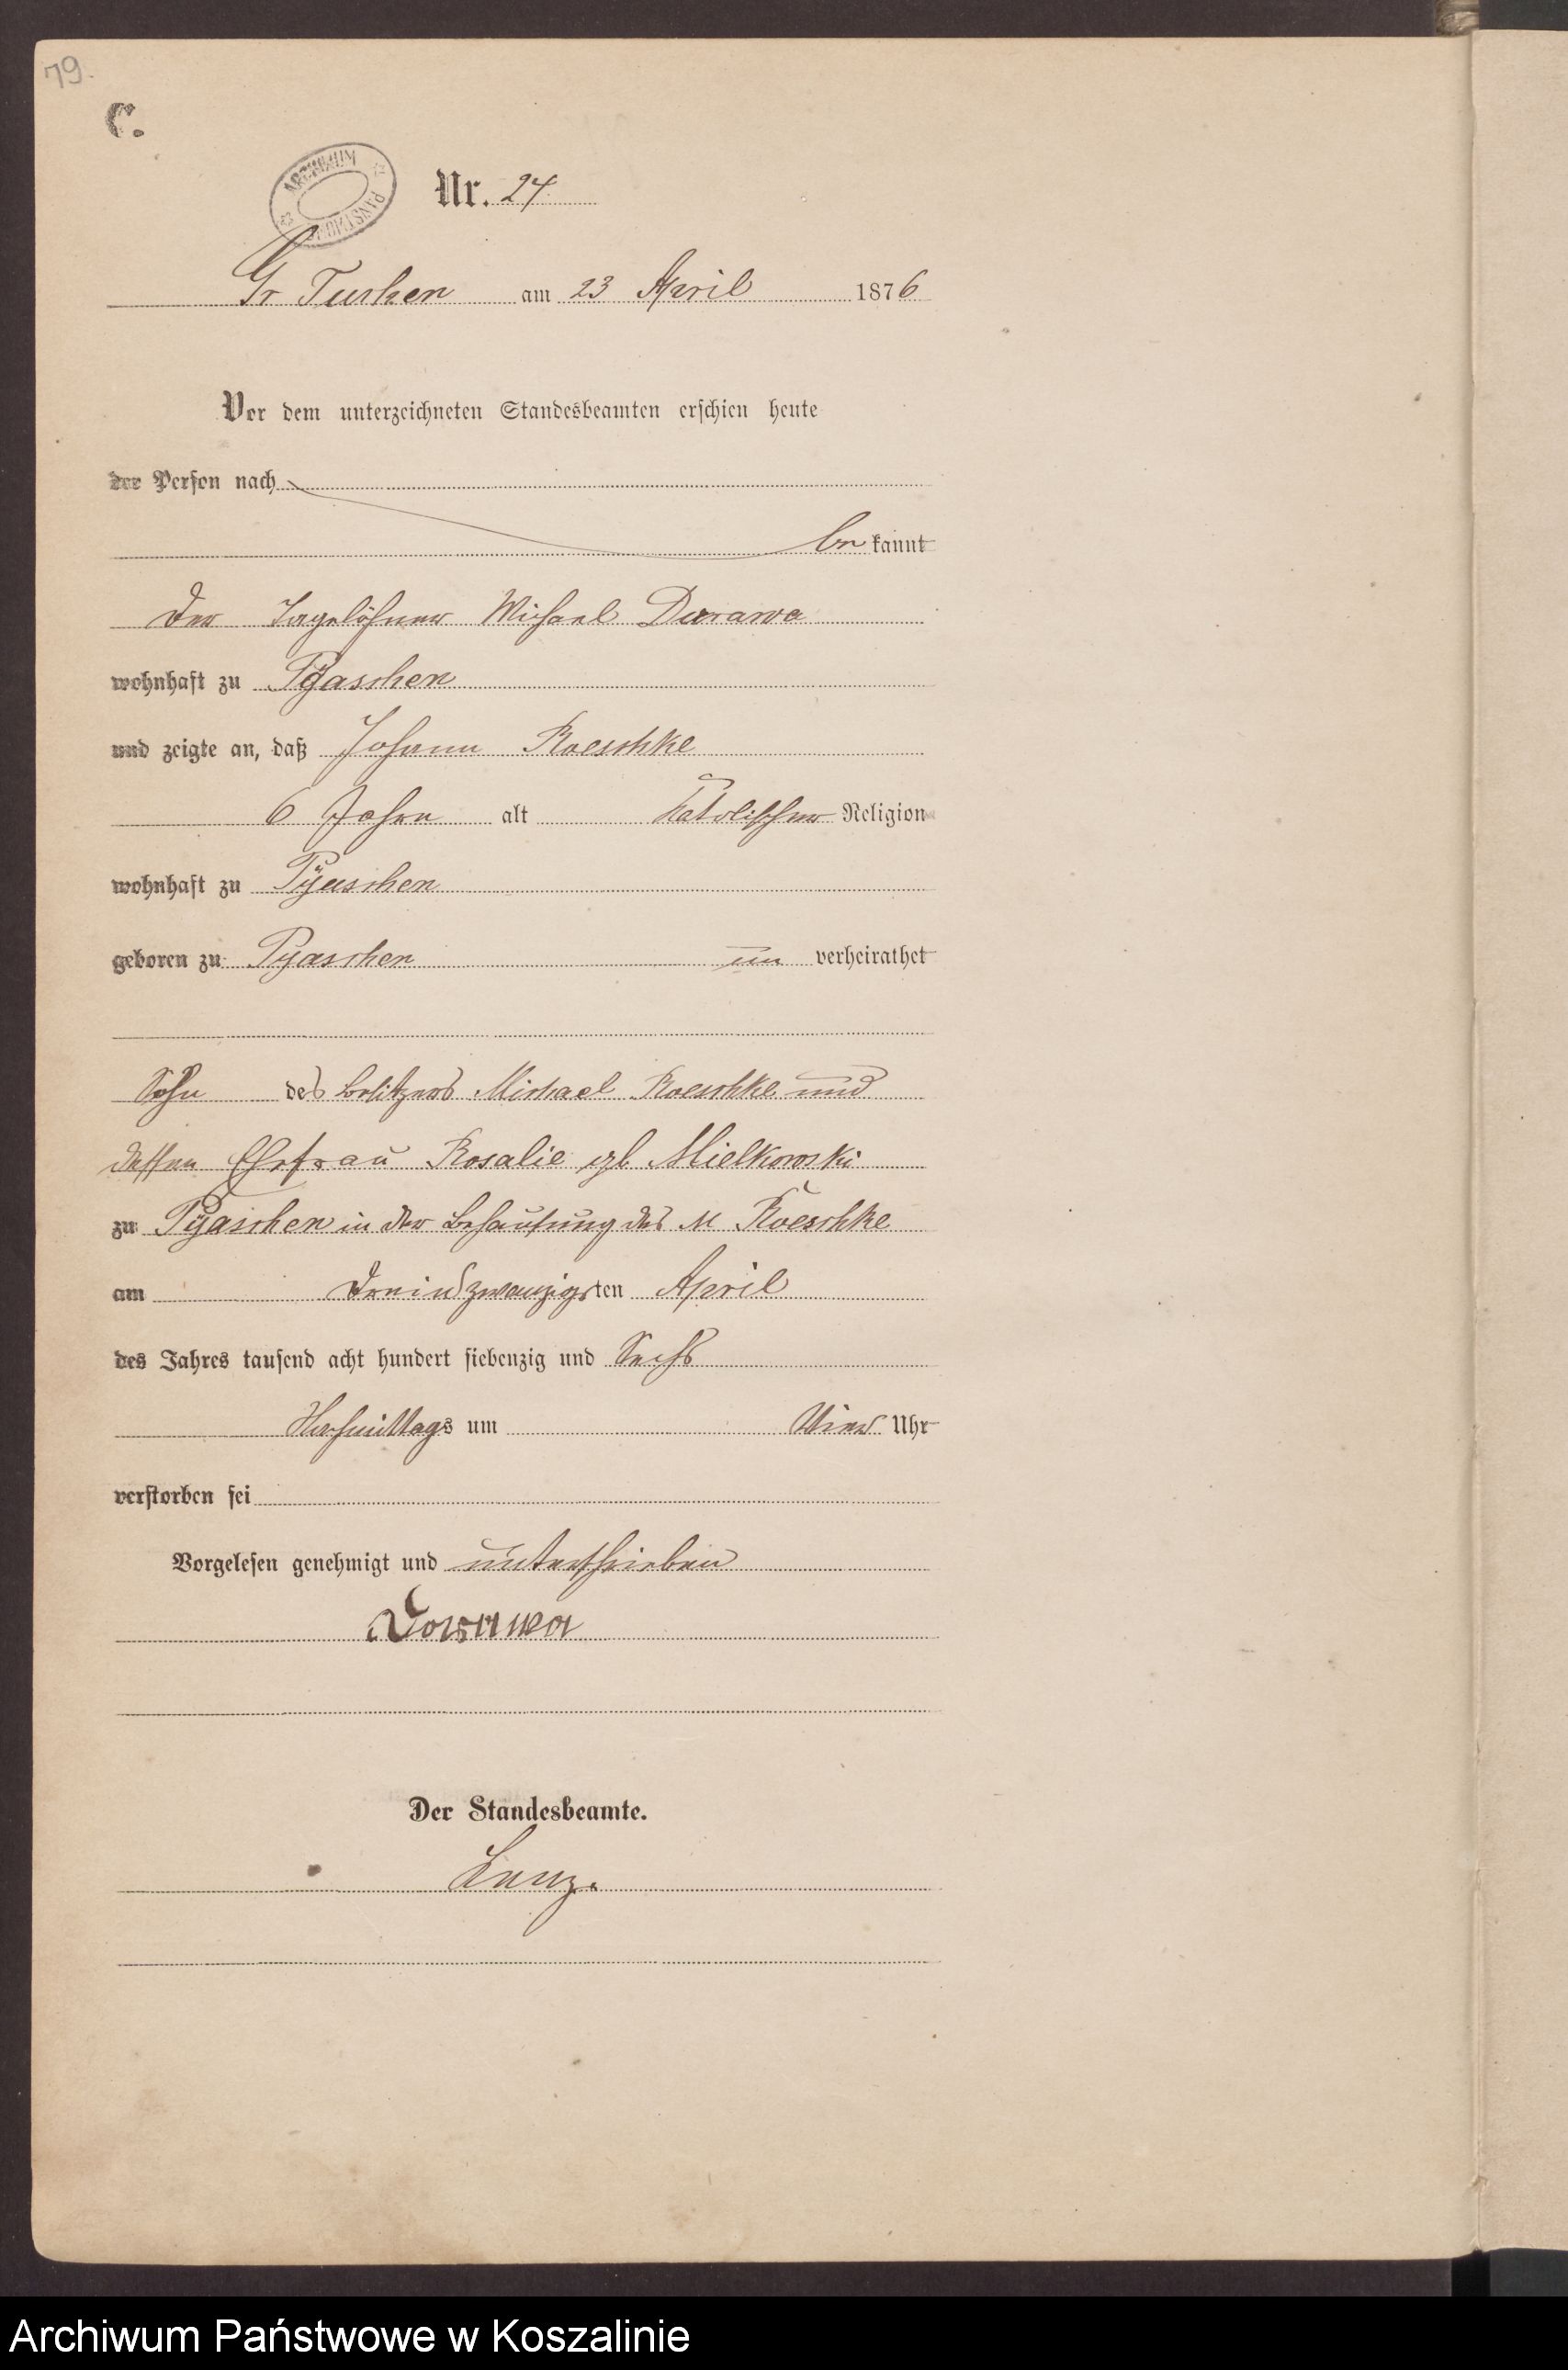 79.
C.
ARCHIWUM PAŃSTWOWE
Nr. 24
Gr Tuchen am 23 April 1876
Vor dem unterzeichneten Standesbeamten erschien heute
der Person nach
be kannt
der Tagelöhner Michael Durawa
wohnhaft zu Pyaschen
und zeigte an, daß Johann Roeschke
6 Jahre alt katolischer Religion
wohnhaft zu Pyaschen
geboren zu Pyaschen un verheirathet
Sohn des Besitzers Michael Roeschke und
dessen Ehefrau Rosalie gb Mielkowski
zu Pyaschen in der Behausung des M Roeschke
am dreiundzwanzigsten April
des Jahres tausend acht hundert siebenzig und Sechs
Nachmittags um Vier Uhr
verstorben sei
Vorgelesen genehmigt und unterschrieben
Der Standesbeamte.
Archiwum Państwowe w Koszalinie